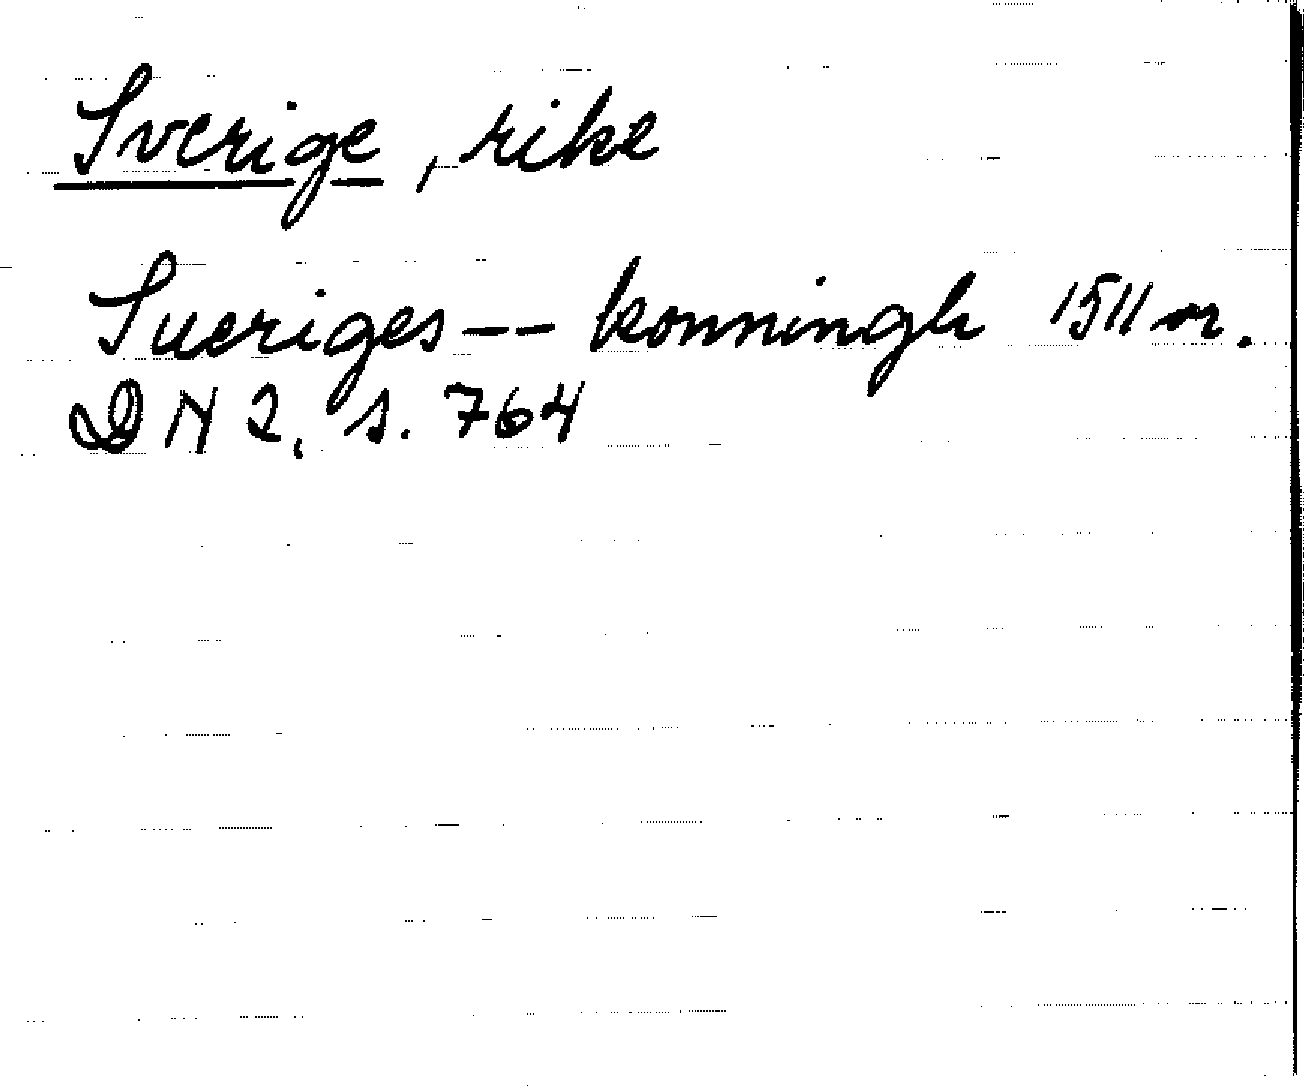 Sverige, rike
Sueriges-- konningh 1511 or.
DN 2, s. 764